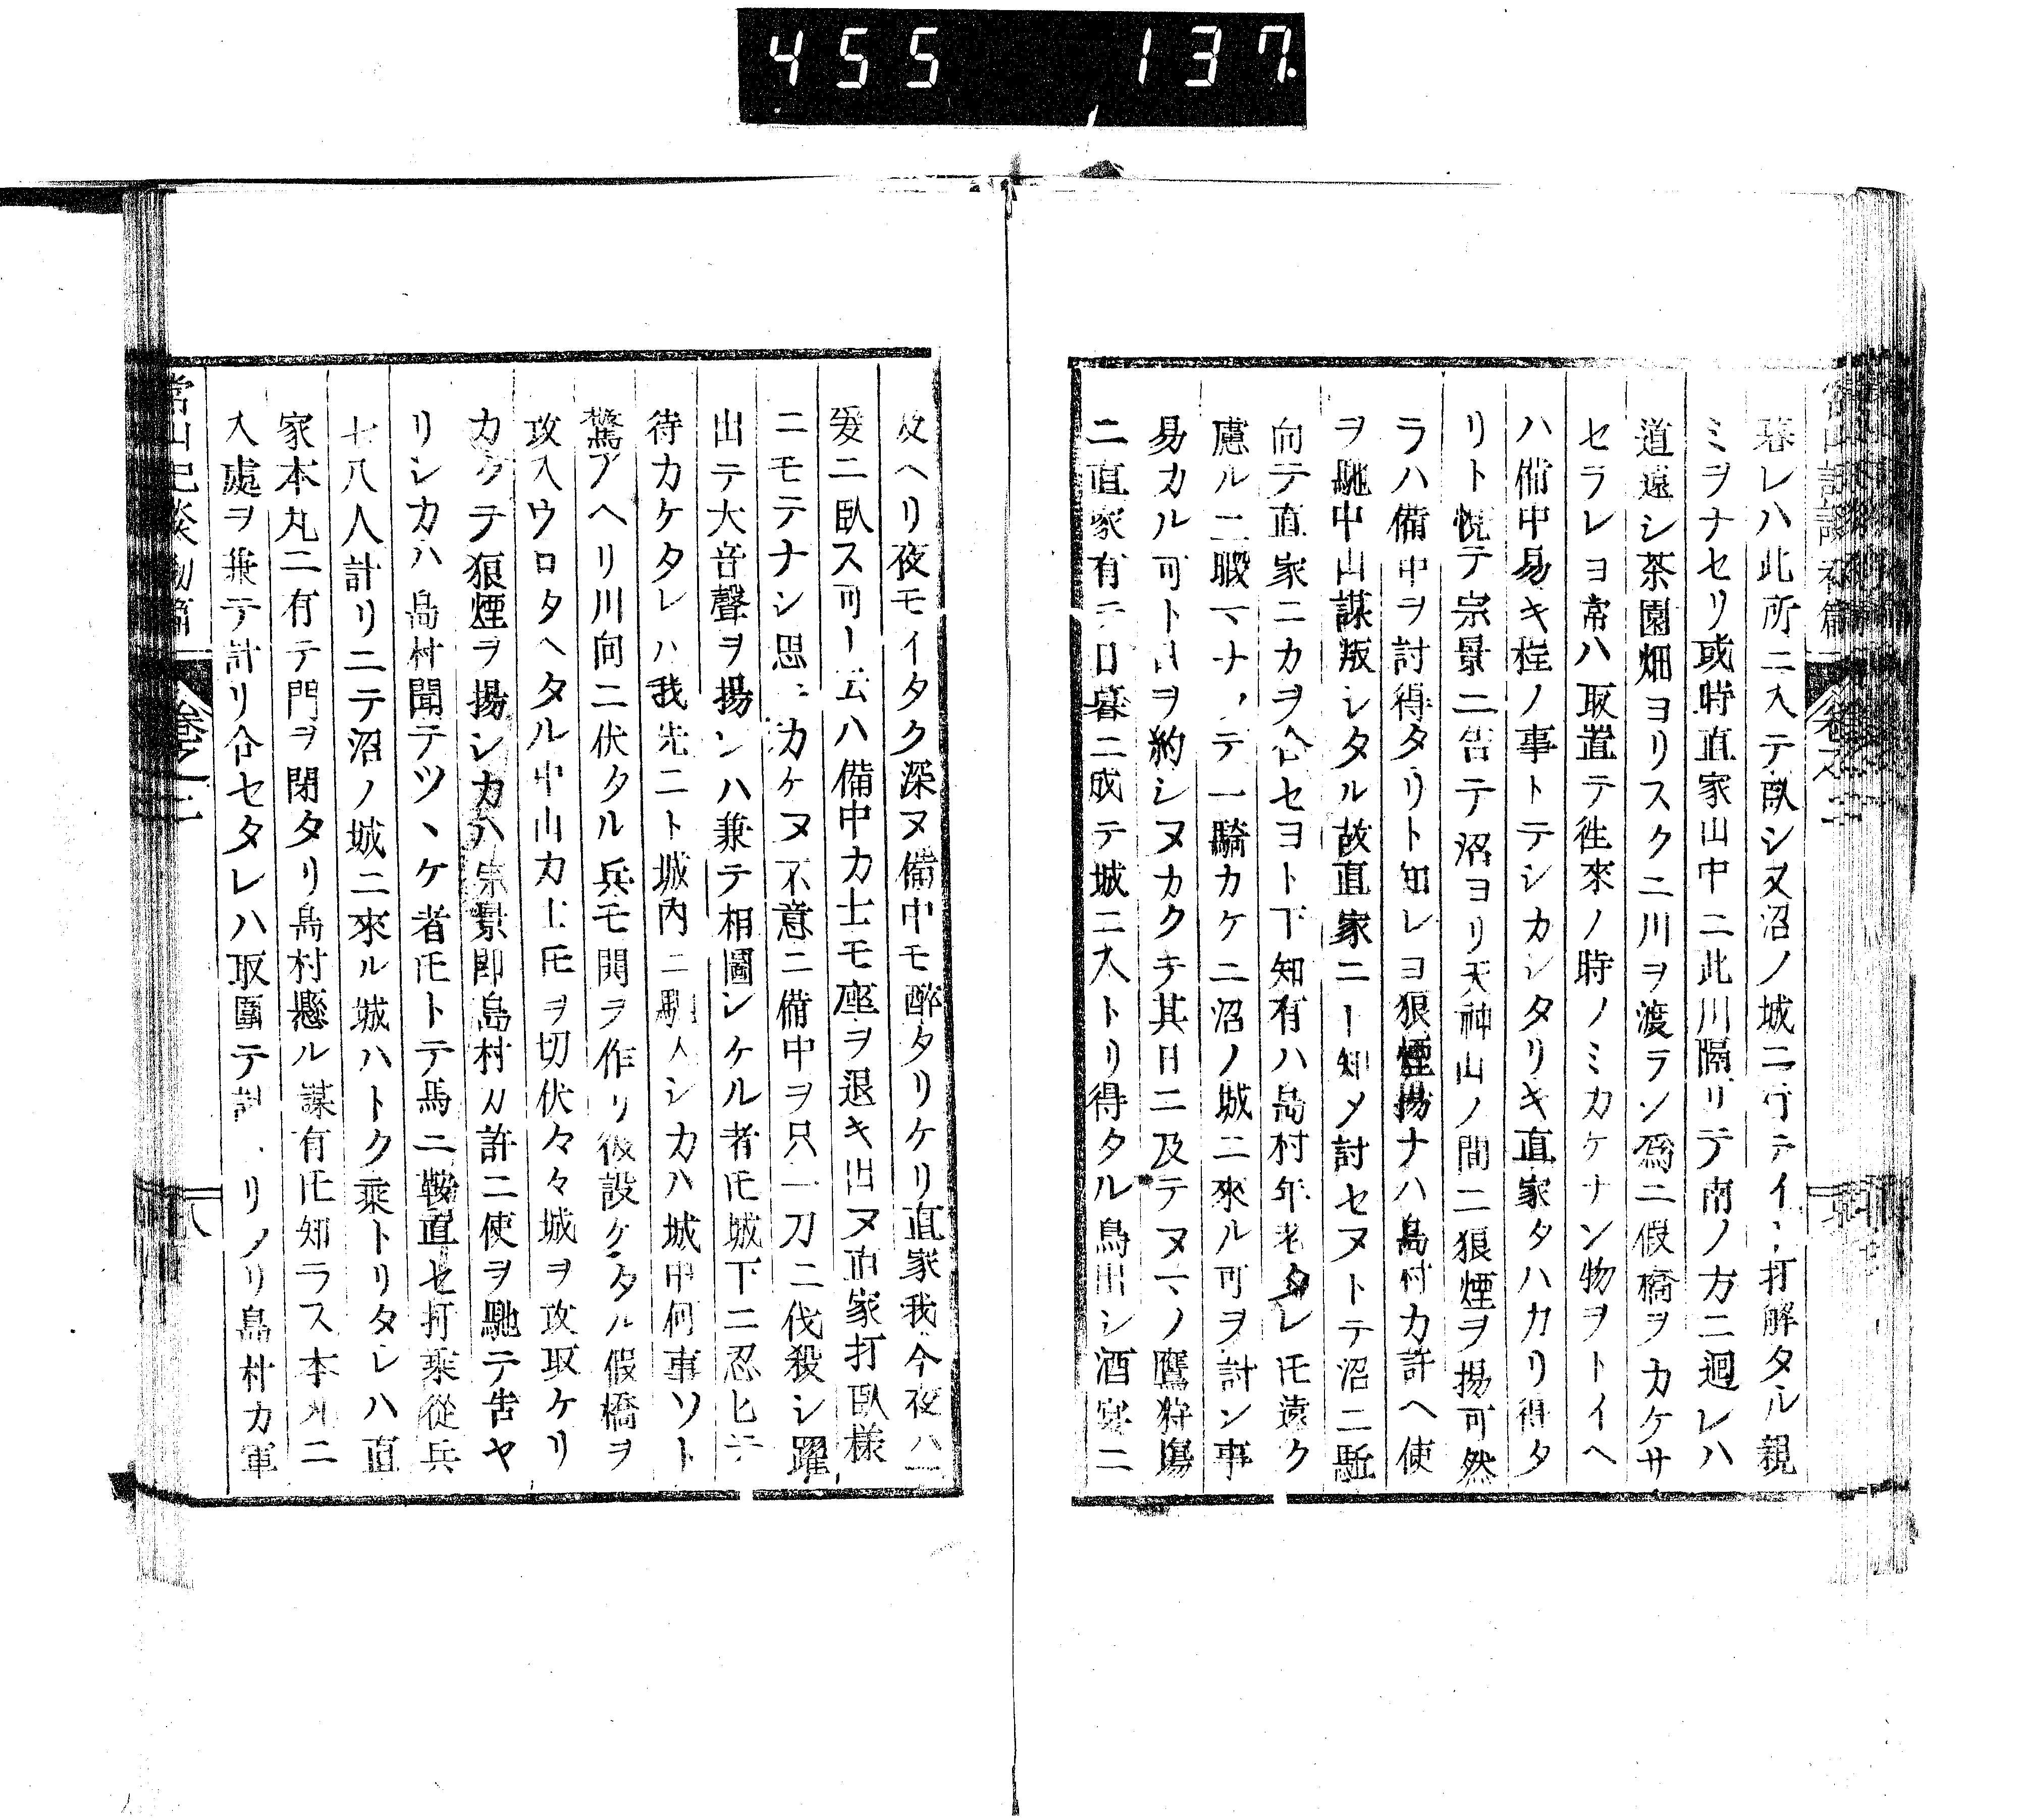 455 137
暮レハ此所ニ入テ臥シ又沼ノ城ニ行テイ打解タル親
ミヲナセリ或時直家山中ニ此川隔リテ南ノ方ニ迴レハ
道遠シ茶園畑ヨリスクニ川ヲ渡ラン爲ニ假橋ヲカケサ
セラレヨ常ハ取置テ徃來ノ時ノミカケナン物ヲトイヘ
ハ備中易キ程ノ事トテシカシタリキ直家タハカリ得タ
リト悦テ宗景ニ告テ沼ヨリ天神山ノ間ニ狼煙ヲ揚可然
ラハ備中ヲ討得タリト知レヨ狼煙揚ナハ島村カ許ヘ使
ヲ馳中山謀叛シタル故直家ニ一知メ討セヌトテ沼ニ馳
向テ直家ニカヲ合セヨト下知有ハ島村年老タレ𪜈遠ク
慮ルニ暇マナクテ一騎カケニ沼ノ城ニ來ル可ヲ討ン事
易カル可ト日ヲ約シヌカクテ其日ニ及テヌマノ鷹狩塲
ニ直家有テ日暮ニ成テ城ニ入トリ得タル鳥出シ酒宴ニ
及ヘリ夜モイタク深ヌ備中モ醉タリケリ直家我今夜ハ
爰ニ臥ス可ト云ハ備中カ士モ座ヲ退キ出ヌ直家打臥樣
ニモテナシ思ヒカケヌ不意ニ備中ヲ只一刀ニ伐殺シ躍
出テ大音聲ヲ揚ンハ兼テ相圖シケル者𪜈城下ニ忍ヒテ
待カケタレハ我先ニト城内ニ駈入シカハ城中何事ソト
驚アヘリ川向ニ伏タル兵モ鬨ヲ作リ彼設ケタル假橋ヲ
攻入ウロタヘタル中山カ士𪜈ヲ切伏々々城ヲ攻取ケリ
カクテ狼煙ヲ揚シカハ宗景即島村カ許ニ使ヲ馳テ告ヤ
リシカハ島村聞テツヽケ者𪜈トテ馬ニ鞍直セ打乘從兵
七八人計リニテ沼ノ城ニ來ル城ハトク乘トリタレハ直
家本丸ニ有テ門ヲ閉タリ島村懸ル謀有𪜈知ラス本丸ニ
入處ヲ兼テ計リ合セタレハ取圍テ討リノリ島村カ軍
常山紀談初篇 卷之二 八